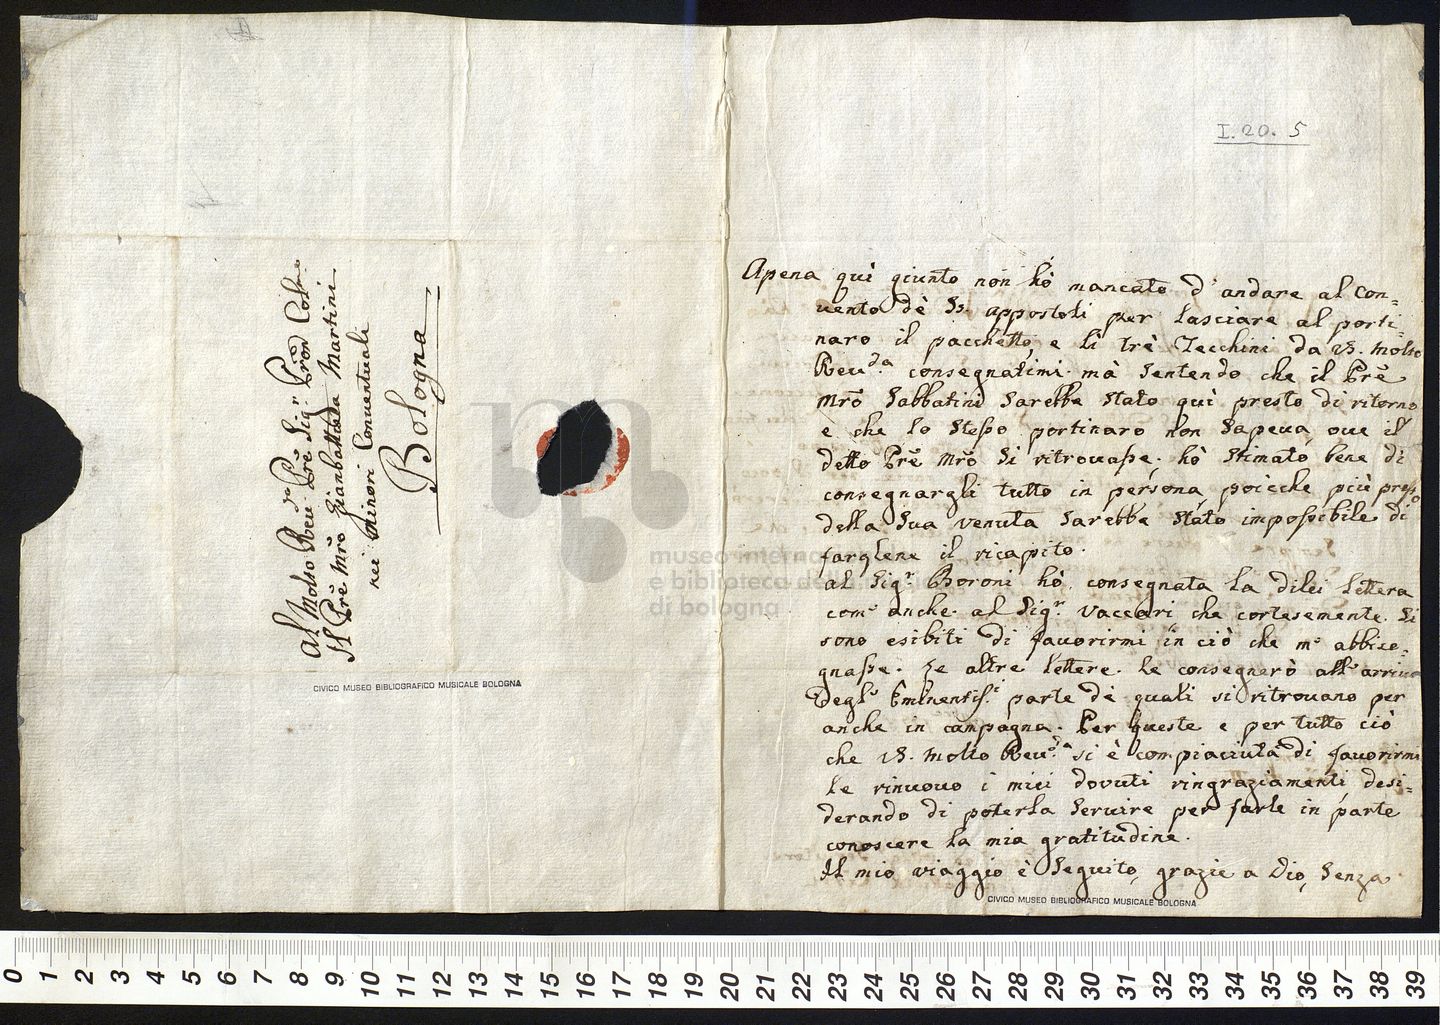 Al Molto Reu.do Pre Sig.r Pron Col.mo
Il Pre Mro Gianbattista Martini
nei Minori Conuentuali
Bologna
CIVICO MUSEO BIBLIOGRAFICO MUSICALE BOLOGNA
museo interna
e biblioteca della
di bologna
I. 20. 5
Apena quì giunto non hò mancato d'andare al Con=
uento dè SS. appostoli per lasciare al porti=
naro il pacchetto, e li trè Zecchini da V. Molto
Reu.da consegnatimi. mà sentendo che il Pre
Mro Sabbatini sarebbe stato quì presto di ritorno
e che lo stesso portinaro non sapeua oue il
detto Pre Mro si ritrouasse. hò stimato bene di
consegnargli tutto in persona, poicche più presto
della sua venuta sarebbe stato impossibile di
farglene il ricapito.
al Sig.r Boroni hò consegnata la dilei lettera
come anche al Sig.r Vaccari che cortesemente si
sono esibiti di fauorirmi in ciò che m' abbiso=
gnasse. Le altre lettere le consegnerò all'arriuo
degl' Eminentiss.i parte dè quali si ritrouano per
anche in campagna. Per queste e per tutto ciò
che V. Molto Reu.da si è compiaciuta di fauorirmi
le rinuouo i miei douuti ringraziamenti, desi=
derando di poterla seruire per farle in parte
conoscere la mia gratitudine.
Il mio viaggio è seguito, grazie a Dio, senza
CIVICO MUSEO BIBLIOGRAFICO MUSICALE BOLOGNA
0 1 2 3 4 5 6 7 8 9 10 11 12 13 14 15 16 17 18 19 20 21 22 23 24 25 26 27 28 29 30 31 32 33 34 35 36 37 38 39